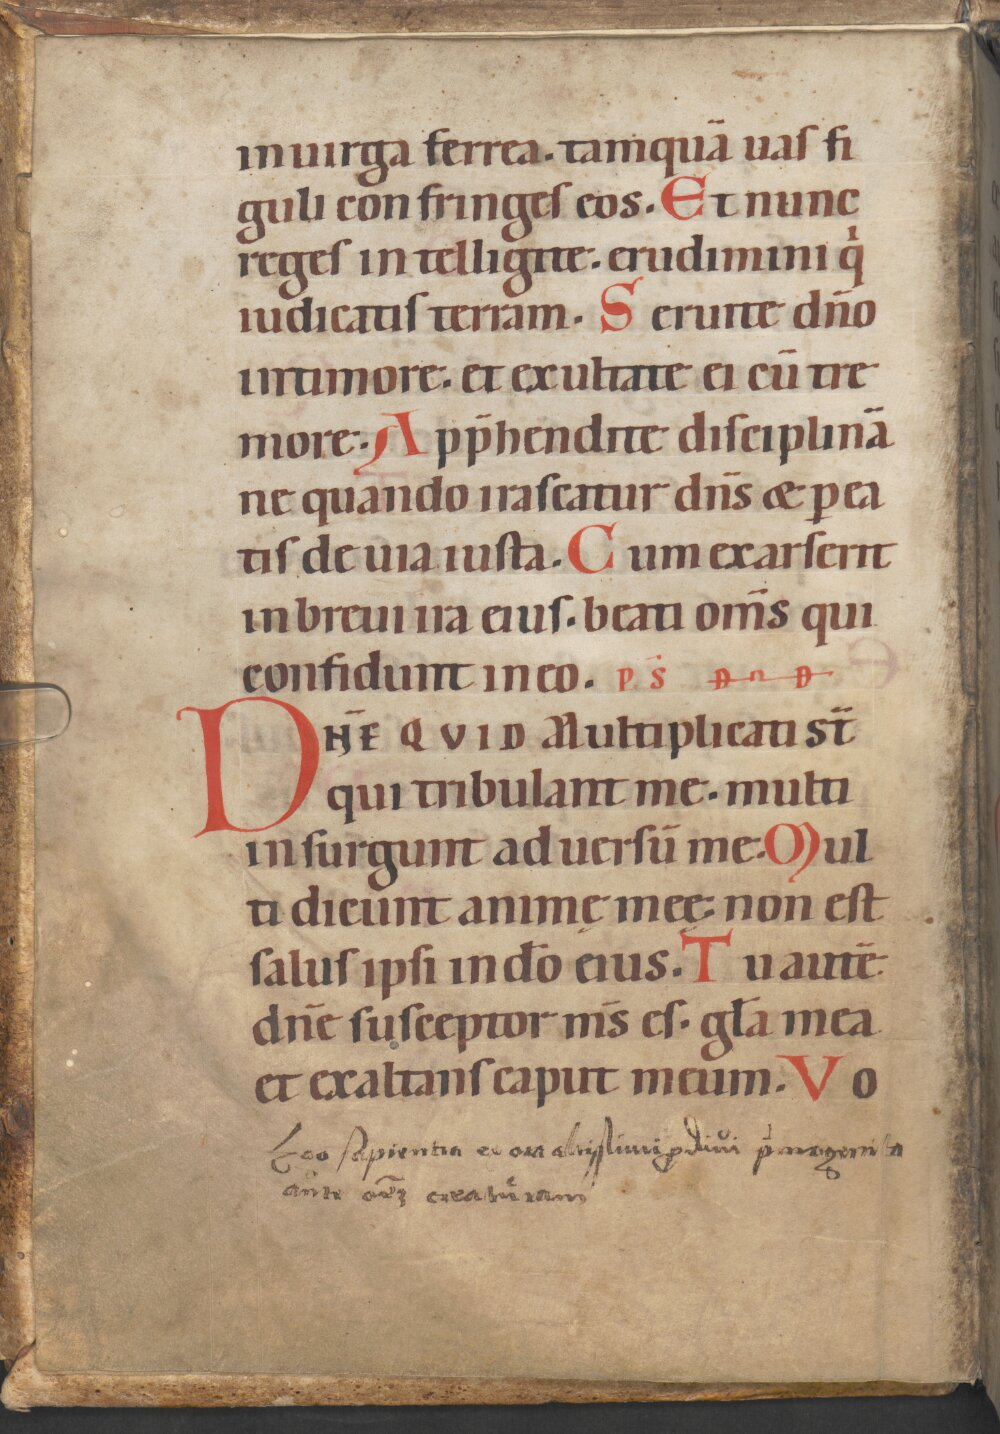 in uirga ferrea. tamquā uas fi
guli confringes eos. Et nunc
reges intelligite. erudimini qi
iudicatis terram. Seruite dn̄o
in timore. et exultate ei cū tre
more. App̄hendite disciplinā
ne quando irascatur dn̄s & pea
tis de uia iusta. Cum exarserit
in breui ira eius. beati om̄s qui
confidunt in eo. PS̄ DnD
DN̄E QVID Multiplicati st̄
qui tribulant me. multi
insurgunt aduersū me. Mul
ti dicunt animę meę. non est
salus ipsi in dō eius. Tu autē
dn̄e susceptor m̄s es. gła mea
et exaltans caput meum. Vo
Ego sapientia ex ore altissimi prodivi primogenita
ante om̄ē creaturam